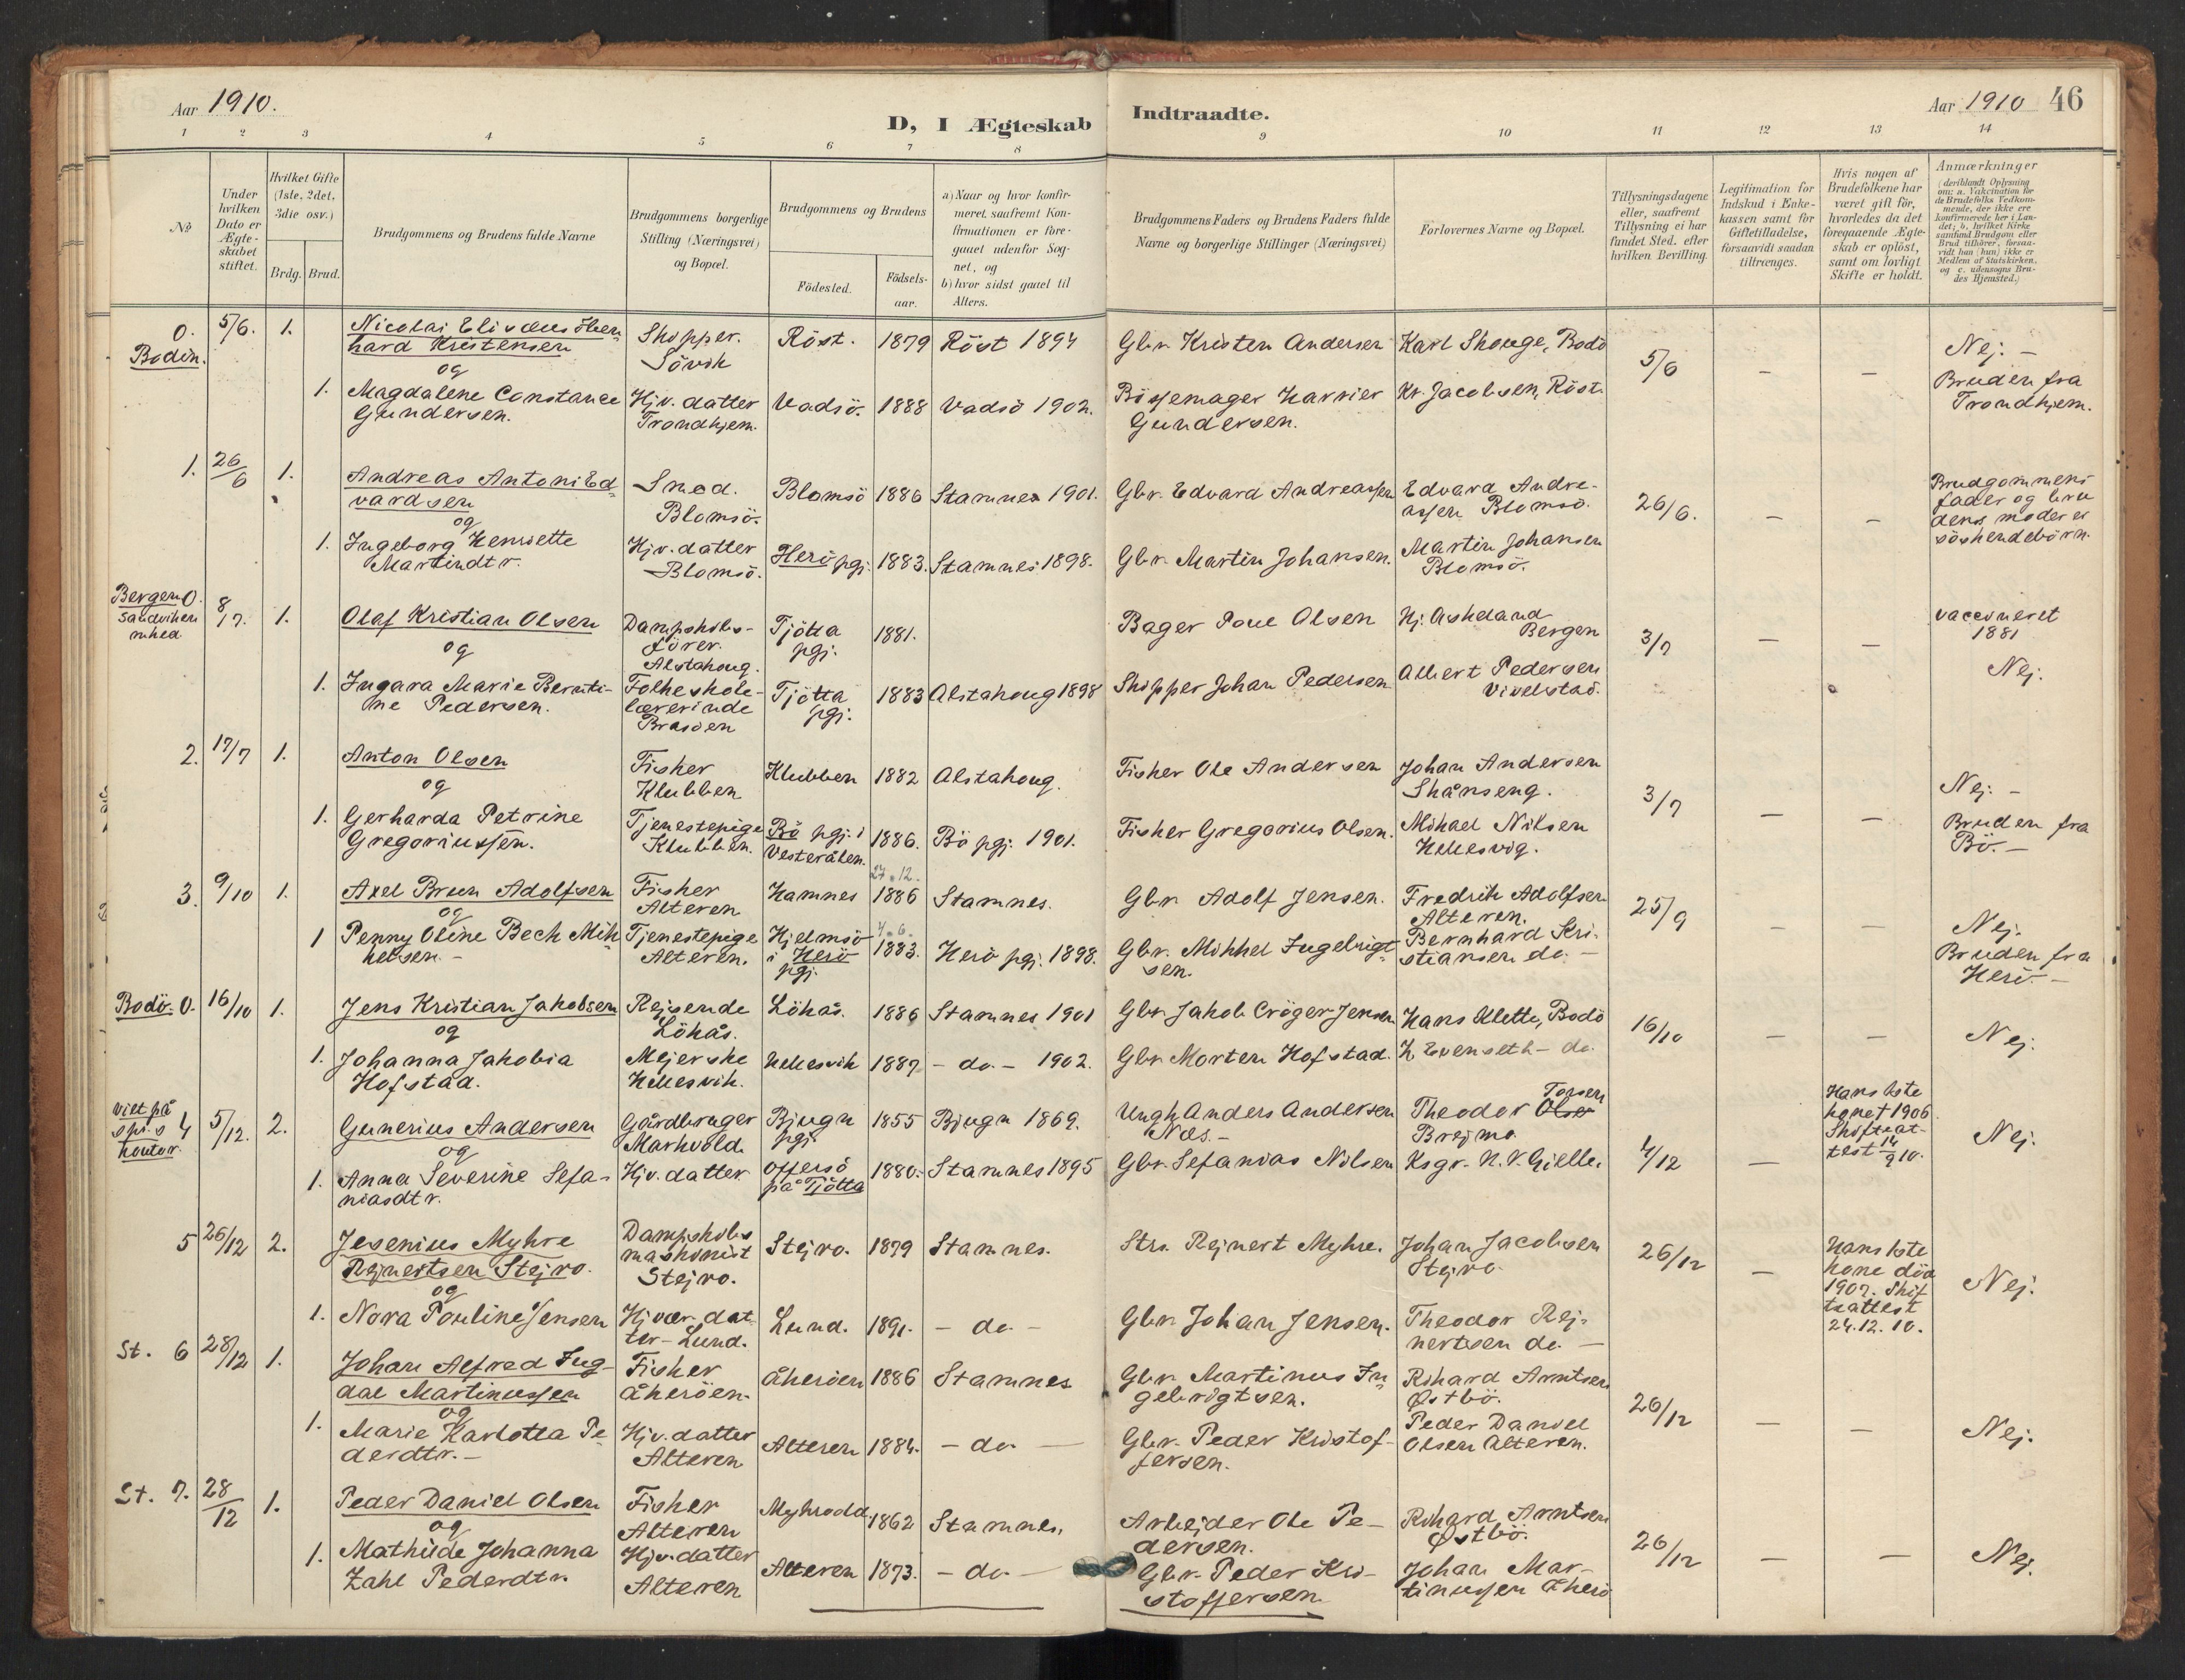 Aar 1910.
D, I Ægteskab
Indtraadte.
Aar 1910
46
1 2 3 4 5 6 7 8 9 10 11 12 13 14
No
Under hvilken Dato er Ægteskabet stiftet.
Hvilket Gifte (1ste, 2det, 3die osv.)
Brdg. Brud.
Brudgommens og Brudens fulde Navne
Brudgommens borgerlige Stilling (Næringsvei) og Bopæl.
Brudgommens og Brudens
Födested.
Födselsaar.
a) Naar og hvor konfirmeret, saafremt Konfirmationen er foregaaet udenfor Sognet, og
b) hvor sidst gaaet til Alters.
Brudgommens Faders og Brudens Faders fulde Navne og borgerlige Stillinger (Næringsvei)
Forlovernes Navne og Bopæl.
Tillysningsdagene eller, saafremt Tillysning ei har fundet Sted, efter hvilken Bevilling.
Legitimation for Indskud i Enkekassen samt for Giftetilladelse, forsaavidt saadan tiltrænges.
Hvis nogen af Brudefolkene har været gift för, hvorledes da det foregaaende Ægteskab er oplöst, samt om lovligt Skifte er holdt.
Anmærkninger
(deriblandt Oplysning om: a. Vakcination for de Brudefolks Vedkommende, der ikke ere konfirmerede her i Landet; b. hvilket Kirkesamfund Brudgom eller Brud tilhörer, forsaavidt han (hun) ikke er Medlem af Statskirken, og c. udensogns Brudes Hjemsted.)
0. Bodin.
5/6.
1.
Nicolai
hard Kristensen
og
Skipper.
Sövik
Röst.
1879
Röst 1894
Gbr. Kristen Andersen
Karl Skouge, Bodö
5/6
—
—
Nej. —
Bruden fra
Trondhjem.
1.
Magdalene Constance
Gundersen.
Hjv. datter
Trondhjem.
Vadsö.
1888
Vadsö 1902.
Bössemager
Gundersen.
Kr. Jacobsen, Röst.
1.
26/6
1.
Andreas Antoni Ed-
vardsen
og
Smed.
Blomsö.
Blomsö
1886
Stamnes 1901.
Gbr. Edvard Andreassen
Edvard Andre-
assen Blomsö.
26/6.
—
—
Brudgommens
fader og bru
dens moder er
söskendebörn.
1.
Ingeborg Henriette
Martindtr.
Hjv. datter
Blomsö.
Herö pgj.
1883.
Stamnes 1898.
Gbr. Martin Johansen.
Martin Johansen
Blomsö.
Bergen 0.
Sandviken
mhed.
8/7.
1.
Olaf Kristian Olsen
og
Dampskibs-
förer.
Alstahoug.
Tjötta
pgj.
1881.
Bager Poul Olsen
Hj. Askeland
Bergen
3/7
—
—
vaccineret
1881
Nej.
1.
Ingara Marie Bernti-
ne Pedersen.
Folkeskole-
lærerinde
Brasöen
Tjötta
pgj.
1883
Alstahoug 1898
Skipper Johan Pedersen
Albert Pedersen
2.
17/7
1.
Anton Olsen
og
Fisker
Klubben
Klubben
1882
Alstahoug.
Fisker Ole Andersen
Johan Andersen
Skånseng.
3/7
—
—
Nej. —
Bruden fra
Bö. —
1.
Gerharda Petrine
Gregoriussen.
Tjenestepige
Klubben.
Bö pgj. i
Vesterålen.
1886.
Bö pgj. 1901.
Fisker Gregorius Olsen.
Mikael Nilsen
Hellesvig.
3.
9/10
1.
Axel Bruun Adolfsen
og
Fisker
Alteren
Hamnes
27.12.
1886
Stamnes.
Gbr Adolf Jensen.
Fredrik Adolfsen
Alteren.
25/9
—
—
Nej.
Bruden fra
Herö. —
1
Penny Oline Bech Mik
kelsen. —
Tjenestepige
Alteren.
Hjelmsö
i Herö
pgj.
4.6.
1883.
Herö pgj. 1898.
Gbr. Mikkel Ingebrigt-
sen.
Bernhard Kri-
stiansen do. —
Bodö. 0.
16/10
1.
Jens Kristian Jakobsen
og
Rejsende
Löhås.
Löhås.
1886
Stamnes 1901
Gbr Jakob Cröger Jensen
Hans Klette, Bodö
16/10
—
—
Nej.
1.
Johanna Jakobia
Hofstad.
Mejerske
Hellesvik.
Hellesvik
1887
— do. — 1902.
Gbr Morten Hofstad.
H Evenseth — do.
viet på
spr.s 4
kontor.
5/12.
2.
Gunerius Andersen
og
Gårdbruger
Markvold.
Bjugn
pgj.
1855
Bjugn 1869.
Ungk. Anders Andersen
Næs. —
Theodor Olsen Torsen
Brejmo.
4/12
—
Hans 1ste
kone† 1906
Skifteat-
test 14/9 10.
Nej.
1.
Anna Severine Sefa-
niasdtr.
Hjv. datter
Offersö
på Tjötta
1880.
Stamnes 1895
Gbr. Sefanias Nilsen
Ksgr. N. V. Gielle.
5
26/12
2.
Jesenius Myhre
Rejnertsen Stejro.
og
Dampskibs
maskinist
Stejro.
Stejro.
1879
Stamnes.
Strs. Rejnert Myhre.
Johan Jacobsen
Stejro.
26/12
—
Hans 1ste
kone död
1907. Skif
teattest
24.12.10.
Nej.
1.
Nora Pouline Jensen
Hjvær. dat
ter — Lund.
Lund.
1891.
— do —
Gbr Johan Jensen.
Theodor Rej-
nertsen do. —
St. 6
28/12
1.
Johan Alfred Ing-
dal Martinussen
og
Fisker
åkeröen.
åkeröen
1886
Stamnes
Gbr Martinus In-
gebrigtsen.
Rikard Arntsen
Østbö.
26/12
—
—
Nej.
1.
Marie Karlotta Pe
derdtr. —
Hjv. datter
Alteren
Alteren
1884.
— do —
Gbr. Peder Kristof-
fersen.
Peder Daniel
Olsen Alteren.
St. 7.
28/12
1.
Peder Daniel Olsen
og
Fisker
Alteren
1862
Stamnes.
Arbejder Ole Pe-
dersen.
Rikard Arntsen
Østbö.
26/12
—
—
Nej.
1.
Mathilde Johanna
Zahl Pederdtr.
Hjv. datter
Alteren
Alteren
1873.
— do —
Gbr. Peder Kri-
stoffersen.
Johan Mar-
tinussen Åkerö